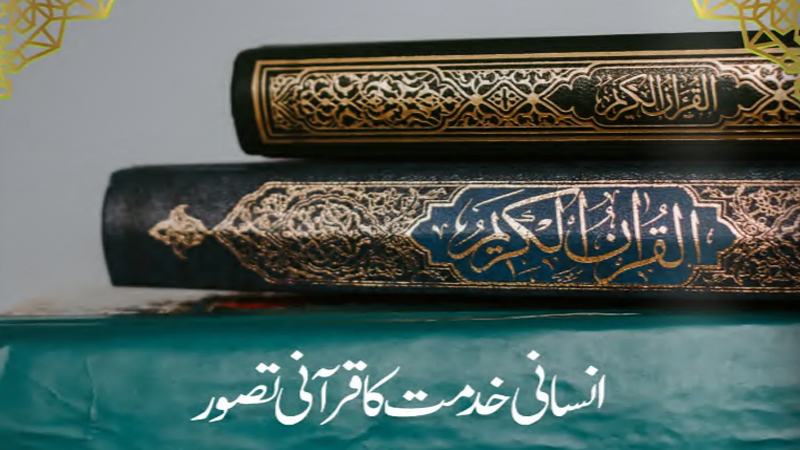 القرآن الكريم
القرآن الكريم
انسانی خدمت کا قرآنی تصور